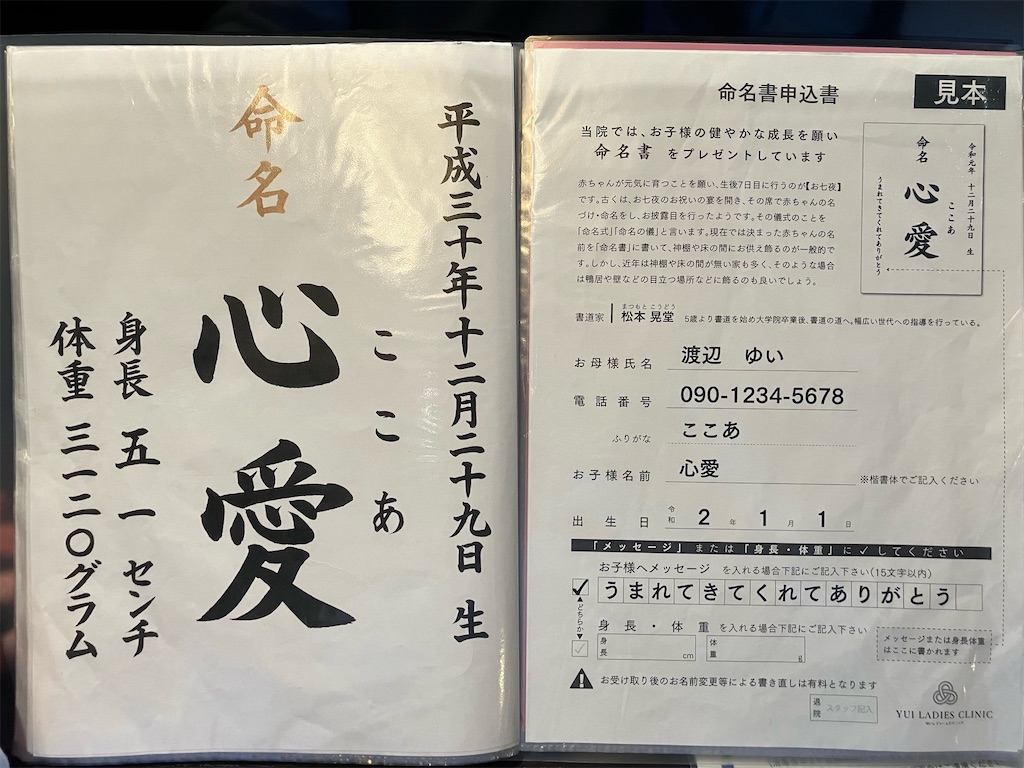 命名
平成三十年十二月二十九日 生
ここあ
心愛
身長 五一 センチ
体重 三一二〇グラム
命名書申込書
見本
当院では、お子様の健やかな成長を願い
命名書 をプレゼントしています
赤ちゃんが元気に育つことを願い、生後7日目に行うのが【お七夜】
です。古くは、お七夜のお祝いの宴を開き、その席で赤ちゃんの名
づけ・命名をし、お披露目を行ったようです。その儀式のことを
「命名式」「命名の儀」と言います。現在では決まった赤ちゃんの名
前を「命名書」に書いて、神棚や床の間にお供え飾るのが一般的で
す。しかし、近年は神棚や床の間が無い家も多く、そのような場合
は鴨居や壁などの目立つ場所などに飾るのも良いでしょう。
令和元年 十二月二十九日 生
命名
ここあ
心愛
うまれてきてくれてありがとう
書道家
まつもと こうどう
松本 晃堂
5歳より書道を始め大学院卒業後、書道の道へ。幅広い世代への指導を行っている。
お母様氏名 渡辺 ゆい
電話番号 090-1234-5678
ふりがな ここあ
お子様名前 心愛
※楷書体でご記入ください
出生日 令和 2 年 1 月 1 日
「メッセージ」または「身長・体重」に✓してください
お子様へメッセージ を入れる場合下記にご記入下さい(15文字以内)
✓ うまれてきてくれてありがとう
どちらか
身長・体重 を入れる場合下記にご記入下さい
✓ 身長 cm 体重 g
メッセージまたは身長体重
はここに書かれます
お受け取り後のお名前変更等による書き直しは有料となります
退院 スタッフ記入
YUI LADIES CLINIC